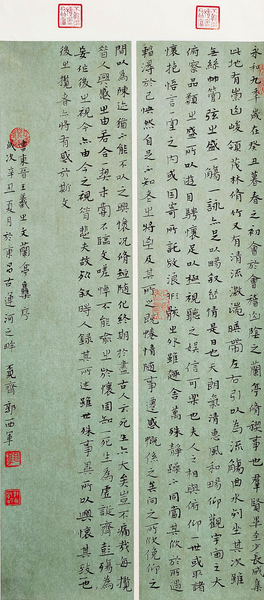 永和九年歲在癸丑暮春之初會於會稽山陰之蘭亭脩禊事也群賢畢至少長咸集
此地有崇山峻領茂林脩竹又有清流激湍暎帶左右引以為流觴曲水列坐其次雖
無絲竹管弦之盛一觴一詠亦足以暢敘幽情是日也天朗氣清惠風和暢仰觀宇宙之大
俯察品類之盛所以遊目騁懷足以極視聽之娛信可樂也夫人之相與俯仰一世或取諸
懷抱悟言一室之內或因寄所託放浪形骸之外雖趣舍萬殊靜躁不同當其欣於所遇
暫得於己快然自足不知老之將至及其所之既惓情隨事遷感慨係之矣向之所欣俛仰之
間以為陳迹猶不能不以之興懷況脩短隨化終期於盡古人云死生亦大矣豈不痛哉每攬
昔人興感之由若合一契未嘗不臨文嗟悼不能喻之於懷固知一死生為虛誕齊彭殤為
妄作後之視今亦由今之視昔悲夫故列敘時人錄其所述雖世殊事異所以興懷其致一也
後之攬者亦將有感於斯文
東晉王羲之文蘭亭集序
歲次辛丑夏月於東昌古運河之畔 齋 鄭西軍